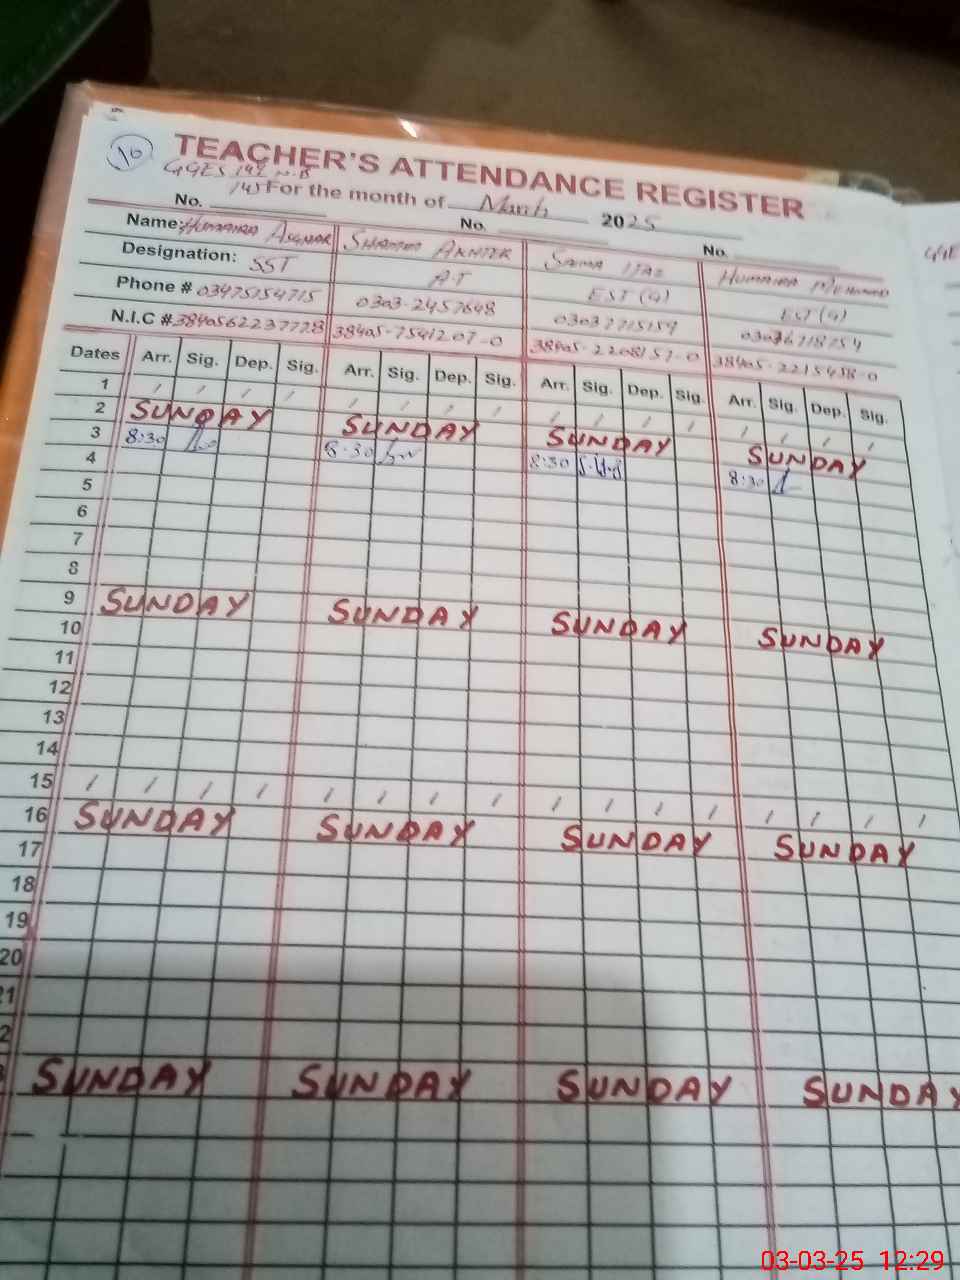 10
TEACHER'S ATTENDANCE REGISTER
GGES 142 N.B
145 For the month of March 2025
No. No. No.
Name: Humaira Asghar Shamim Akhter Saima Ijaz Humaira
Designation: SST A.T EST (G) EST (G)
Phone # 03475154715 0303-2457648 03037715159
N.I.C # 3840562237728 38405-7541207-0 38405-2208157-0 38405-2215458-0
Dates Arr. Sig. Dep. Sig. Arr. Sig. Dep. Sig. Arr. Sig. Dep. Sig. Arr. Sig. Dep. Sig.
1 / / / / / / / / / / / / / / / /
2 SUNDAY SUNDAY SUNDAY SUNDAY
3 8:30 8:30 8:30 8:30
4
5
6
7
8
9 SUNDAY SUNDAY SUNDAY SUNDAY
10
11
12
13
14
15 / / / / / / / / / / / / / / / /
16 SUNDAY SUNDAY SUNDAY SUNDAY
17
18
19
20
21
2
SUNDAY SUNDAY SUNDAY SUNDAY
03-03-25 12:29